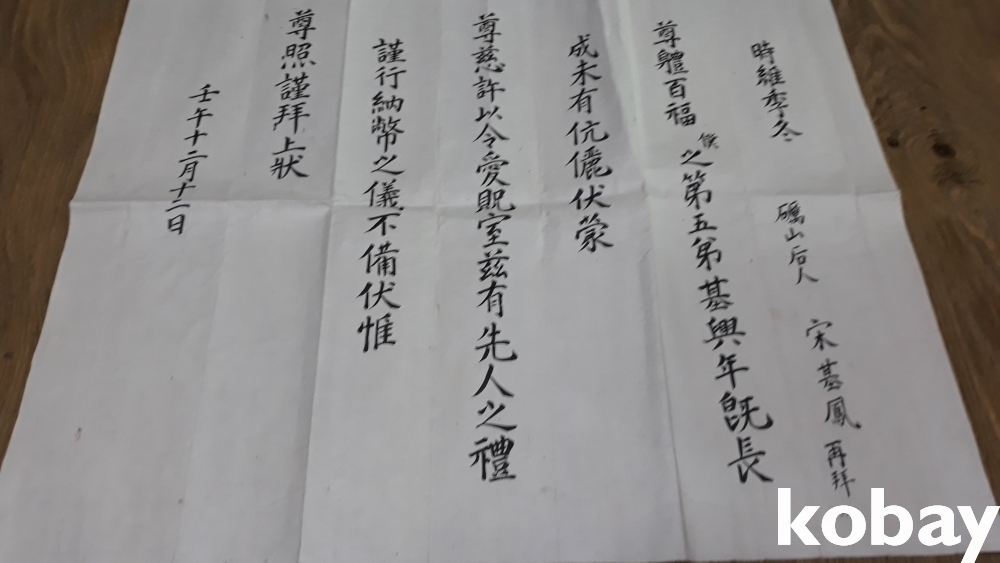 時維季冬
礪山后人 宋基鳳 再拜
尊體百福僕之第五弟基興年旣長
成未有伉儷伏蒙
尊慈許以令愛貺室玆有先人之禮
謹行納幣之儀不備伏惟
尊照謹拜上狀
壬午十二月十二日
kobay